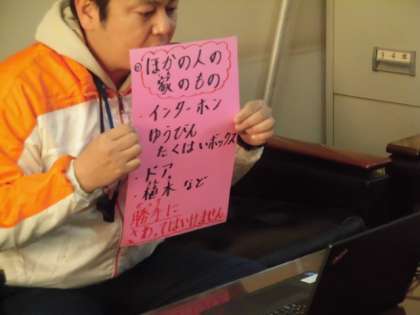 ほかの人の
家のもの
・インターホン
・ゆうびん
たくはいボックス
・ドア
・植木 など
勝手に
さわってはいけません